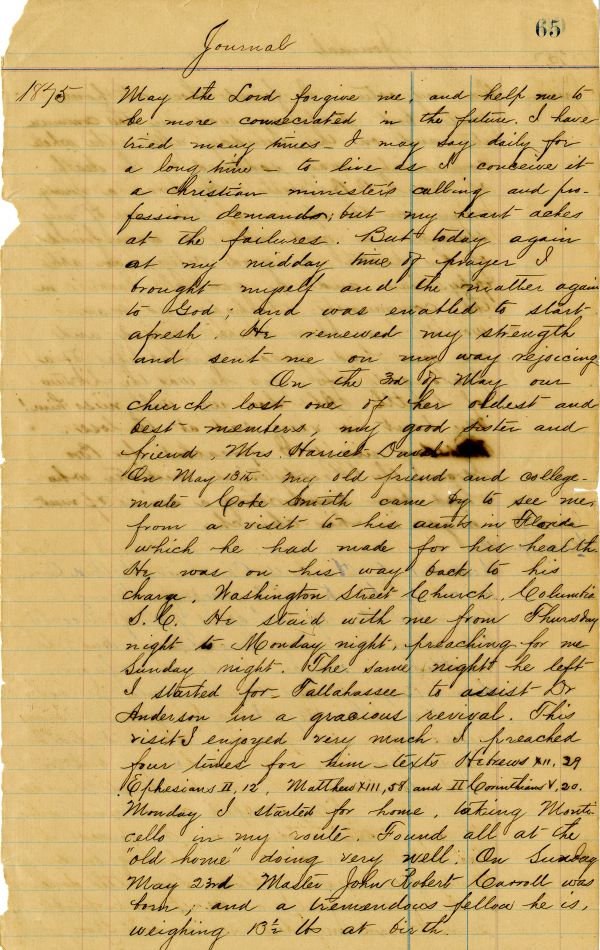 65
Journal
1875
May the Lord forgive me, and help me to
be more consecrated in the future. I have
tried many times – I may say daily for
a long time – to live as I conceive it
a Christian minister's calling and pro-
fession demands; but my heart aches
at the failures. But today again
at my midday time of prayer I
brought myself and the matter again
to God; and was enabled to start
afresh. He renewed my strength
and sent me on my way rejoicing
On the 3rd of May our
church lost one of her oldest and
best members, my good sister and
friend, Mrs. Harriet
On May 13th my old friend and college-
mate Coke Smith came by to see me,
from a visit to his aunts in Florida
which he had made for his health.
He was on his way back to his
charge, Washington Street Church, Columbia
S. C. He staid with me from Thursday
night to Monday night, preaching for me
Sunday night. The same night he left
I started for Tallahassee to assist Dr
Anderson in a gracious revival. This
visit I enjoyed very much. I preached
four times for him – texts Hebrews XII, 29
Ephesians II, 12, Matthew XIII, 58 and II Corinthians V, 20.
Monday I started for home, taking Monti-
cello in my route. Found all at the
"old home" doing very well. On Sunday
May 23rd Master John Robert Carroll was
born; and a tremendous fellow he is,
weighing 13½ lbs at birth.